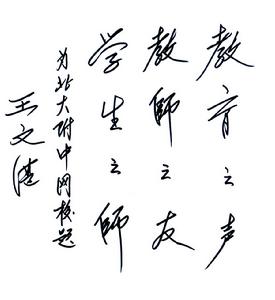 教育之声
教師之友
学生之師
为北大附中网校题
王文湛